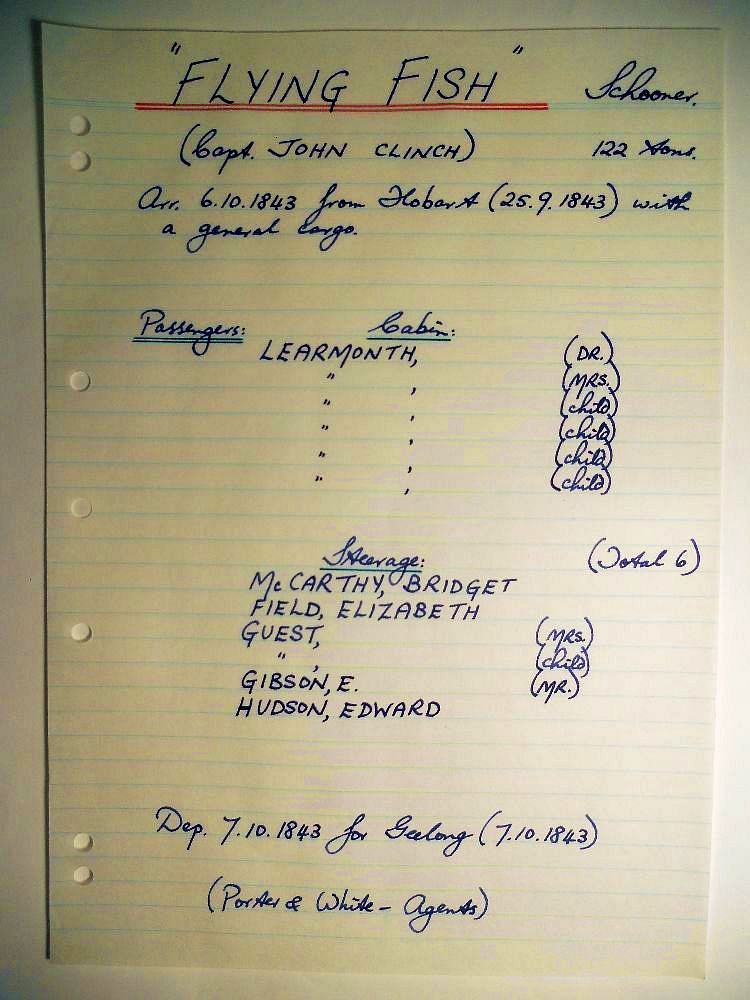 "FLYING FISH" Schooner.
(Capt. JOHN CLINCH) 122 tons.
Arr. 6.10.1843 from Hobart (25.9.1843) with
a general cargo.
Passengers: Cabin:
LEARMONTH, (DR.)
" , (MRS.)
" , (child)
" , (child)
" , (child)
" , (child)
Steerage: (Total 6)
McCARTHY, BRIDGET
FIELD, ELIZABETH
GUEST, (MRS.)
" , (child)
GIBSON, E. (MR.)
HUDSON, EDWARD
Dep. 7.10.1843 for Geelong (7.10.1843)
(Porter & White - Agents)